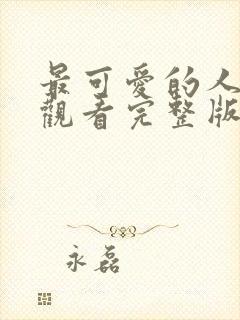 最可愛的人
觀看完整版
永磊